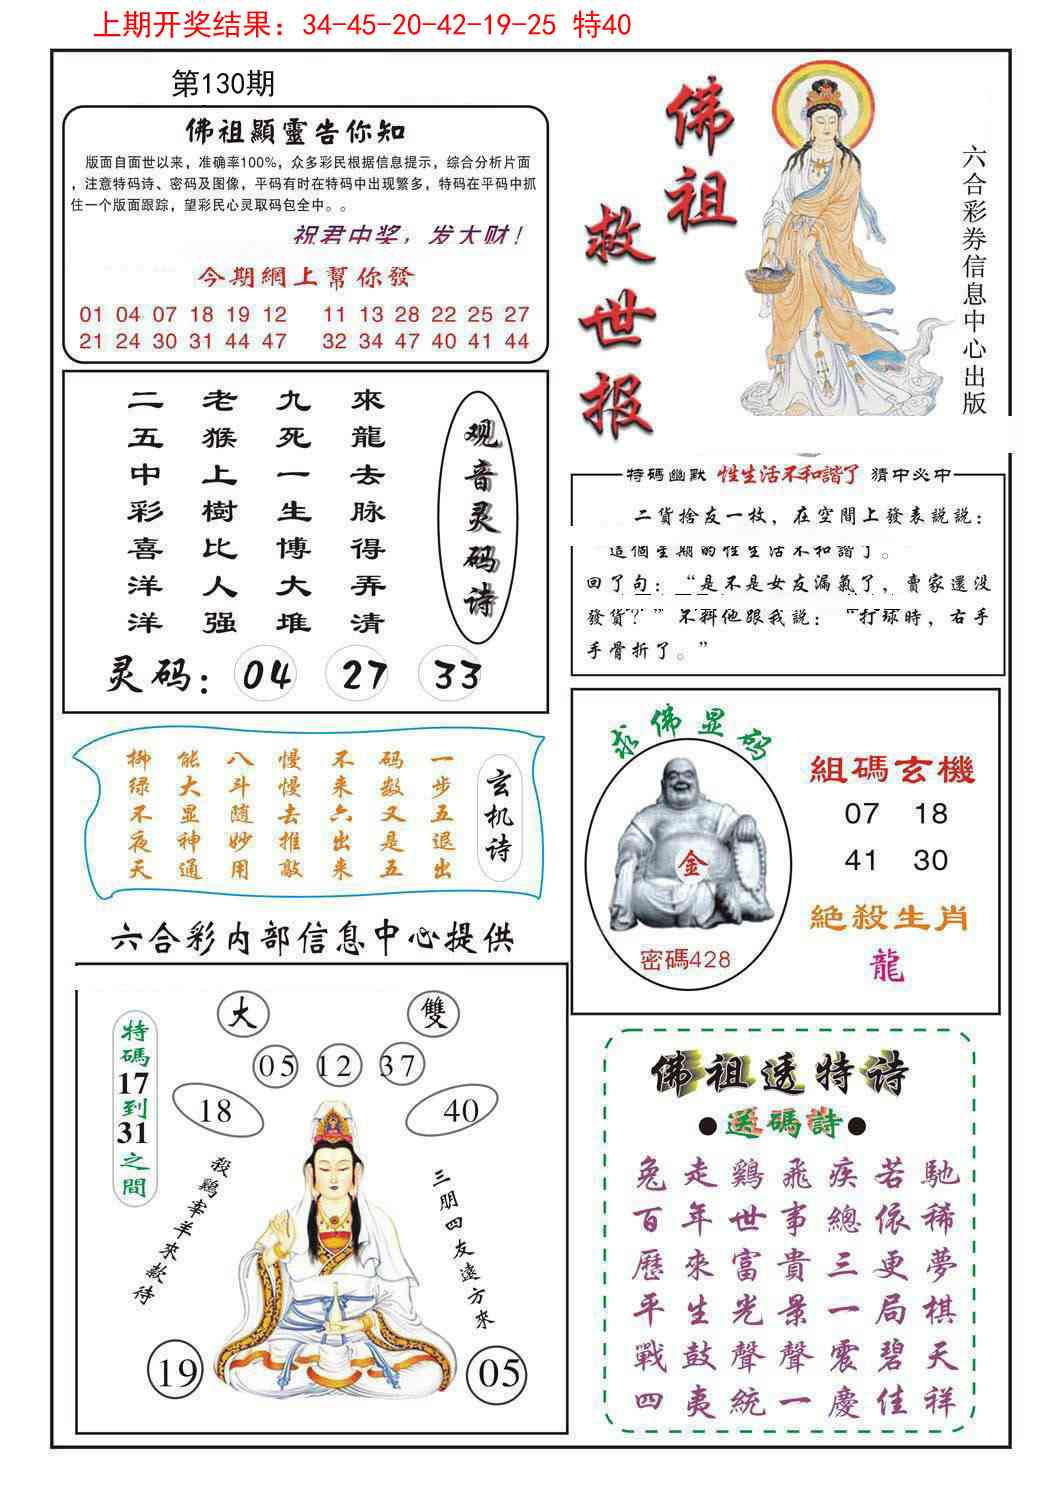 上期开奖结果：34-45-20-42-19-25 特40
第130期
佛祖顯靈告你知
版面自面世以来，准确率100%，众多彩民根据信息提示，综合分析片面
，注意特码诗、密码及图像，平码有时在特码中出现繁多，特码在平码中抓
住一个版面跟踪，望彩民心灵取码包全中。。
祝君中奖，发大财！
今期網上幫你發
01 04 07 18 19 12 11 13 28 22 25 27
21 24 30 31 44 47 32 34 47 40 41 44
佛祖
救世报
六合彩券信息中心出版
观音灵码诗
來龍去脉得弄清
九死一生博大堆
老猴上樹比人强
二五中彩喜洋洋
灵码：04 27 33
特碼幽默 性生活不和諧了 猜中必中
二貨捨友一枚，在空間上發表説説：
這個星期的性生活不和諧了。
回了句：“是不是女友漏氣了，賣家還没
發貨？”不料他跟我説：“打球時，右手
手骨折了。”
玄机诗
一步五退出
码数又是五
不来六出来
慢慢去推敲
八斗随妙用
能大显神通
柳绿不夜天
六合彩内部信息中心提供
求佛显码
金
密碼428
組碼玄機
07 18
41 30
絶殺生肖
龍
大 雙
05 12 37
18 40
特碼17到31之間
殺鷄宰羊來款待
三朋四友遠方來
19 05
佛祖透特诗
●送碼詩●
兔走鷄飛疾若馳
百年世事總依稀
歷來富貴三更夢
平生光景一局棋
戰鼓聲聲震碧天
四夷統一慶佳祥